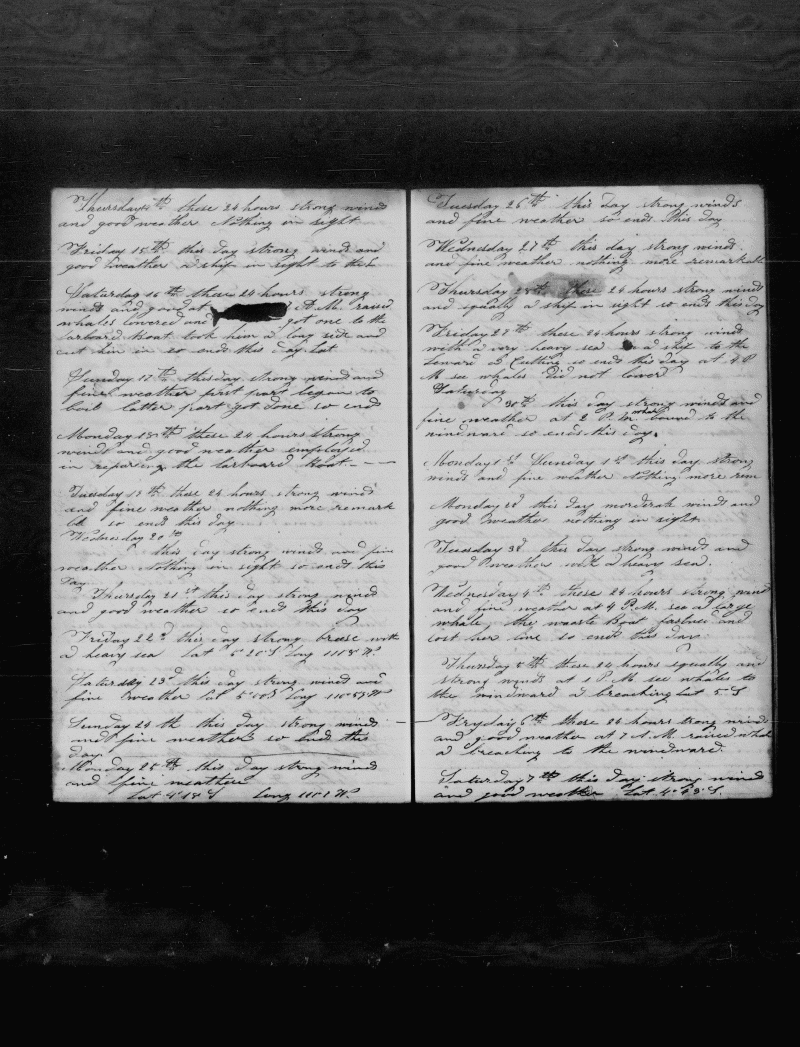 Thursday 14th these 24 hours strong winds
and good weather Nothing in sight
Friday 15th this day strong winds and
good weather a ship in sight to the
Saturday 16th these 24 hours strong
winds and good at A.M. raised
whales lowered and got one to the
larboard Boat took him a long side and
cut him in so ends this day Lat
Sunday 17th this day strong winds and
fine weather first part began to
boil latter part got done so ends
Monday 18th these 24 hours strong
winds and good weather employed
in reparing the larboard Boat
Tuesday 19th these 24 hours strong winds
and fine weather nothing more remark
ble so ends this day
Wednesday 20th
this day strong winds and fine
weather Nothing in sight so ends this
Day
Thursday 21st this day strong winds
and good weather so ends this day
Friday 22d this day strong breese with
a heavy sea Lat 5°20 S Long W
Saturday 23d this day strong winds and
fine weather Lat S Long W
Sunday 24th this day strong winds
and fine weather so ends this
day
Monday 25th this day strong winds
and fine weather
Lat 4°18 S Long W
Tuesday 26th this day strong winds
and fine weather so ends this day
Wednesday 27th this day strong winds
and fine weather nothing more remarkable
Thursday 28th these 24 hours strong winds
and squaly a ship in sight so ends this day
Friday 29th these 24 hours strong winds
with a very heavy sea a ship to the
Leward Cutting so ends this day at 4 P
M see whales did not lower
Saturday
30th this day strong winds and
fine weather at 2 P.M. whales bound to the
windward so ends this day.
Monday 1st Sunday 1st this day strong
winds and fine weather Nothing more rem
Monday 2d this day morderate winds and
good weather nothing in sight
Tuesday 3d this day strong winds and
good weather with a heavy sea.
Wednesday 4th these 24 hours strong winds
and fine weather at 4 P.M. sea a large
whale, the waste Boat fastned and
lost her line so ends this day
Thursday 5th these 24 hours squally and
strong winds at 1 P M see whales to
the windward a breaching Lat 5° S
Fryday 6th these 24 hours strong winds
and good weather at 7 A.M. raised whales
a breaching to the windward.
Saturday 7th this day strong winds
and good weather Lat 4°48 S.